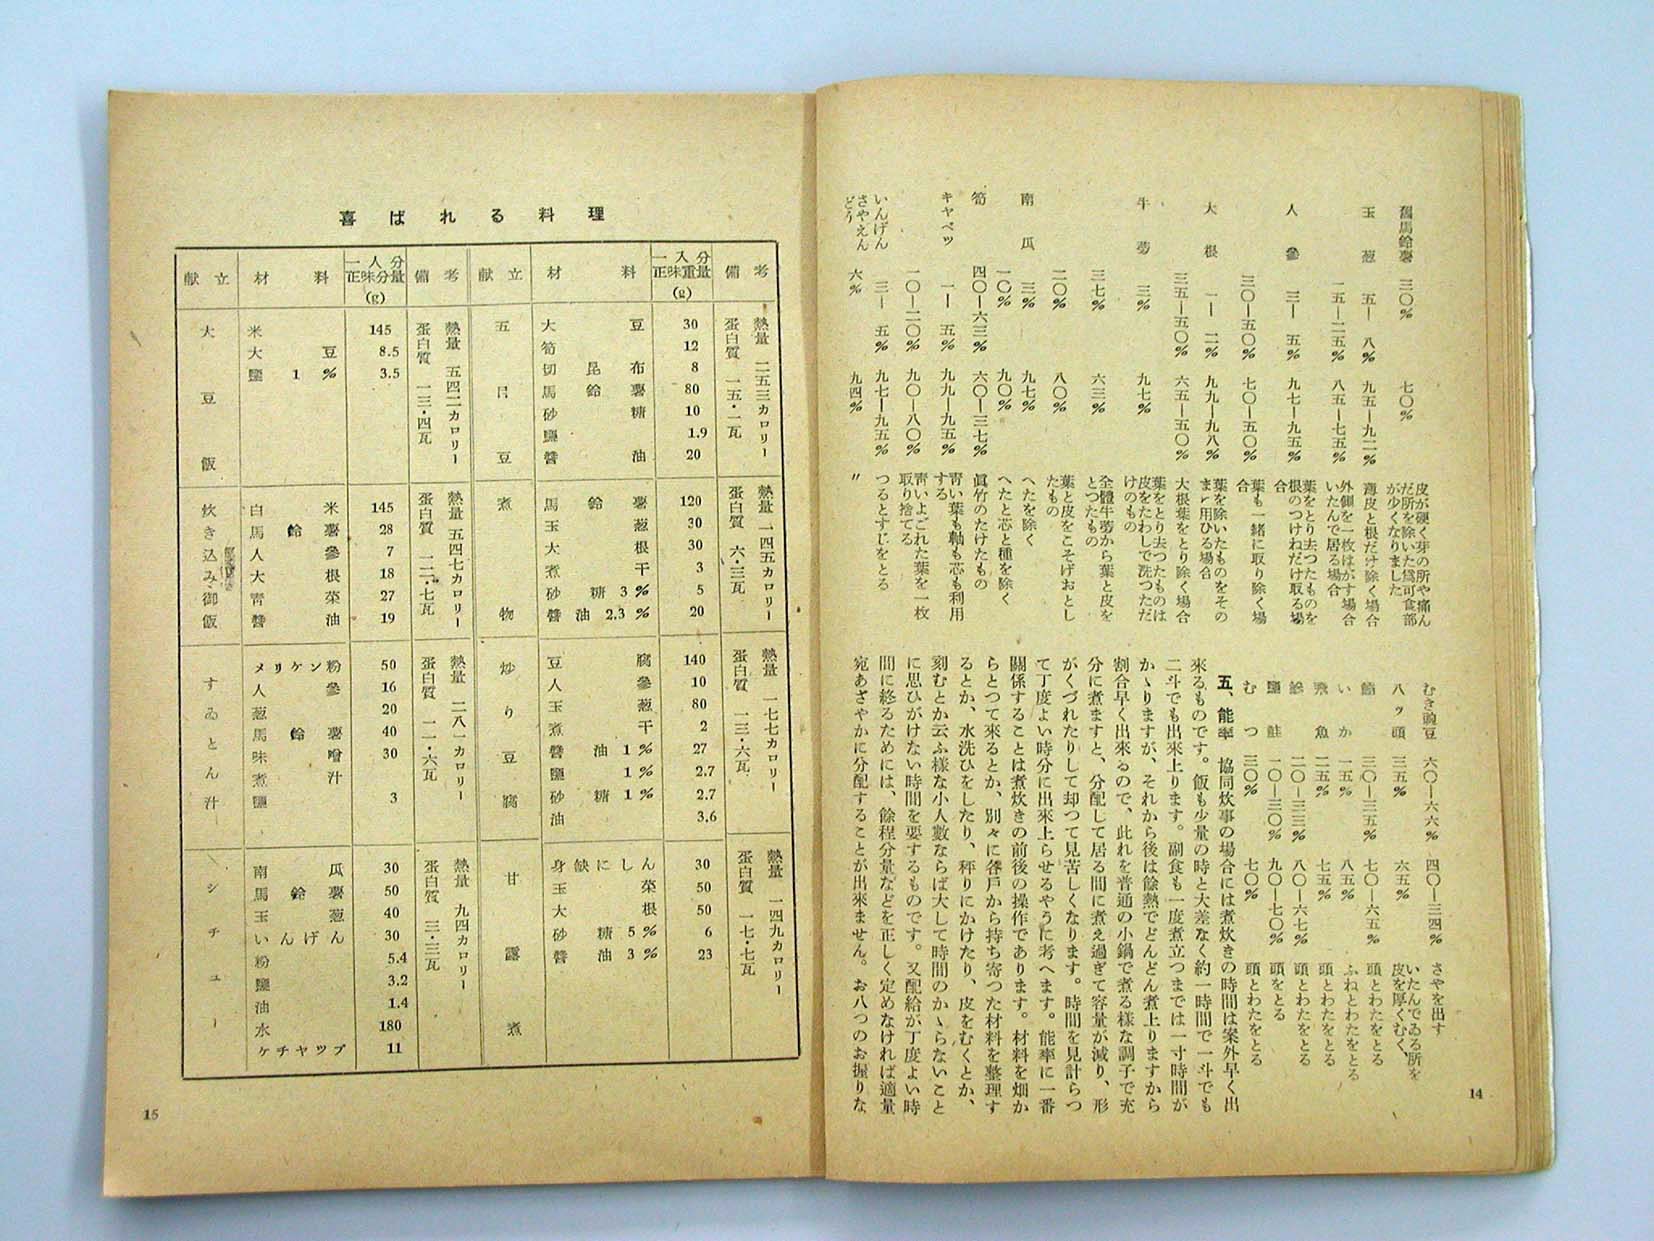 舊馬鈴薯 三〇% 七〇% 皮が硬く芽の所や痛ん
だ所を除いた爲可食部
が少くなりました
玉葱 五―八% 九五―九二% 薄皮と根だけ除く場合
一五―二五% 八五―七五% 外側を一枚はがす場合
いたんで居る場合
人參 三―五% 九七―九五% 葉をとり去つたものを
根のつけねだけ取る場
合
三〇―五〇% 七〇―五〇% 葉も一緒に取り除く場
合
大根 一―二% 九九―九八% 葉を除いたものをその
まゝ用ひる場合
三五―五〇% 六五―五〇% 大根葉をとり除く場合
牛蒡 三% 九七% 葉をとり去つたものは
皮をたわしで洗つただ
けのもの
三七% 六三% 全體牛蒡から葉と皮を
とつたもの
二〇% 八〇% 葉と皮をこそげおとし
たもの
南瓜 三% 九七% へたを除く
一〇% 九〇% へたと芯と種を除く
筍 四〇―六三% 六〇―三七% 眞竹のたけたもの
キヤベツ 一―五% 九九―九五% 靑い葉も軸も芯も利用
する
一〇―二〇% 九〇―八〇% 靑いよごれた葉を一枚
取り捨てる
いんげん 三―五% 九七―九五% つるとすじをとる
さやえん
どう 六% 九四% 〃
むき豌豆 六〇―六六% 四〇―三四% さやを出す
八ッ頭 三五% 六五% いたんでゐる所を
皮を厚くむく、
三〇―三五% 七〇―六五% 頭とわたをとる
いか 一五% 八五% ふねとわたをとる
飛魚 二五% 七五% 頭とわたをとる
二〇―三三% 八〇―六七% 頭とわたをとる
鹽鮭 一〇―三〇% 九〇―七〇% 頭をとる
むつ 三〇% 七〇% 頭とわたをとる
五、能率 協同炊事の場合には煮炊きの時間は案外早く出
來るものです。飯も少量の時と大差なく約一時間で一斗でも
二斗でも出來上ります。副食も一度煮立つまでは一寸時間が
かゝりますが、それから後は餘熱でどんどん煮上りますから
割合早く出來るので、此れを普通の小鍋で煮る樣な調子で充
分に煮ますと、分配して居る間に煮え過ぎて容量が減り、形
がくづれたりして却つて見苦しくなります。時間を見計らつ
て丁度よい時分に出來上らせるやうに考へます。能率に一番
關係することは煮炊きの前後の操作であります。材料を畑か
らとつて來るとか、別々に各戶から持ち寄つた材料を整理す
るとか、水洗ひをしたり、秤りにかけたり、皮をむくとか、
刻むとか云ふ樣な小人數ならば大して時間のかゝらないこと
に思ひがけない時間を要するものです。又配給が丁度よい時
間に終るためには、餘程分量などを正しく定めなければ適量
宛あざやかに分配することが出來ません。お八つのお握りな
14
喜ばれる料理
献立 材料 一人分正味分量(g) 備考 献立 材料 一人分正味重量(g) 備考
大豆飯
米 145
大豆 8.5
鹽 1% 3.5
熱量 五四二カロリー
蛋白質 一三・四瓦
炊き込み御飯
白米 145
馬鈴薯 28
人參 7
大根 18
靑菜 27
醬油 19
熱量 五四七カロリー
蛋白質 一二・七瓦
すゐとん汁
メリケン粉 50
人參 16
葱 20
馬鈴薯 40
味噌 30
煮汁
鹽 3
熱量 二八一カロリー
蛋白質 一一・六瓦
シチュー
南瓜 30
馬鈴薯 50
玉葱 40
いんげん 30
粉 5.4
鹽 3.2
油 1.4
水 180
ケチヤツプ 11
熱量 九四カロリー
蛋白質 三・三瓦
五目豆
大豆 30
筍 12
切昆布 8
馬鈴薯 80
砂糖 10
鹽 1.9
醬油 20
熱量 二五三カロリー
蛋白質 一五・一瓦
煮物
馬鈴薯 120
玉葱 30
大根 30
煮干 3
砂糖 3% 5
醬油 2.3% 20
熱量 一四五カロリー
蛋白質 六・三瓦
炒り豆腐
豆腐 140
人參 10
玉葱 80
煮干 2
醬油 1% 27
鹽 1% 2.7
砂糖 1% 2.7
油 3.6
熱量 一七七カロリー
蛋白質 一三・六瓦
甘露煮
身缺にしん 30
玉菜 50
大根 50
砂糖 5% 6
醬油 3% 23
熱量 一四九カロリー
蛋白質 一七・七瓦
15